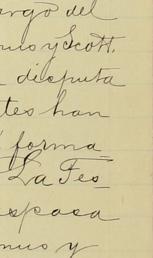 argo del
nus y Scott.
disputa
tes han
forma-
La Tes-
esposa
nus y